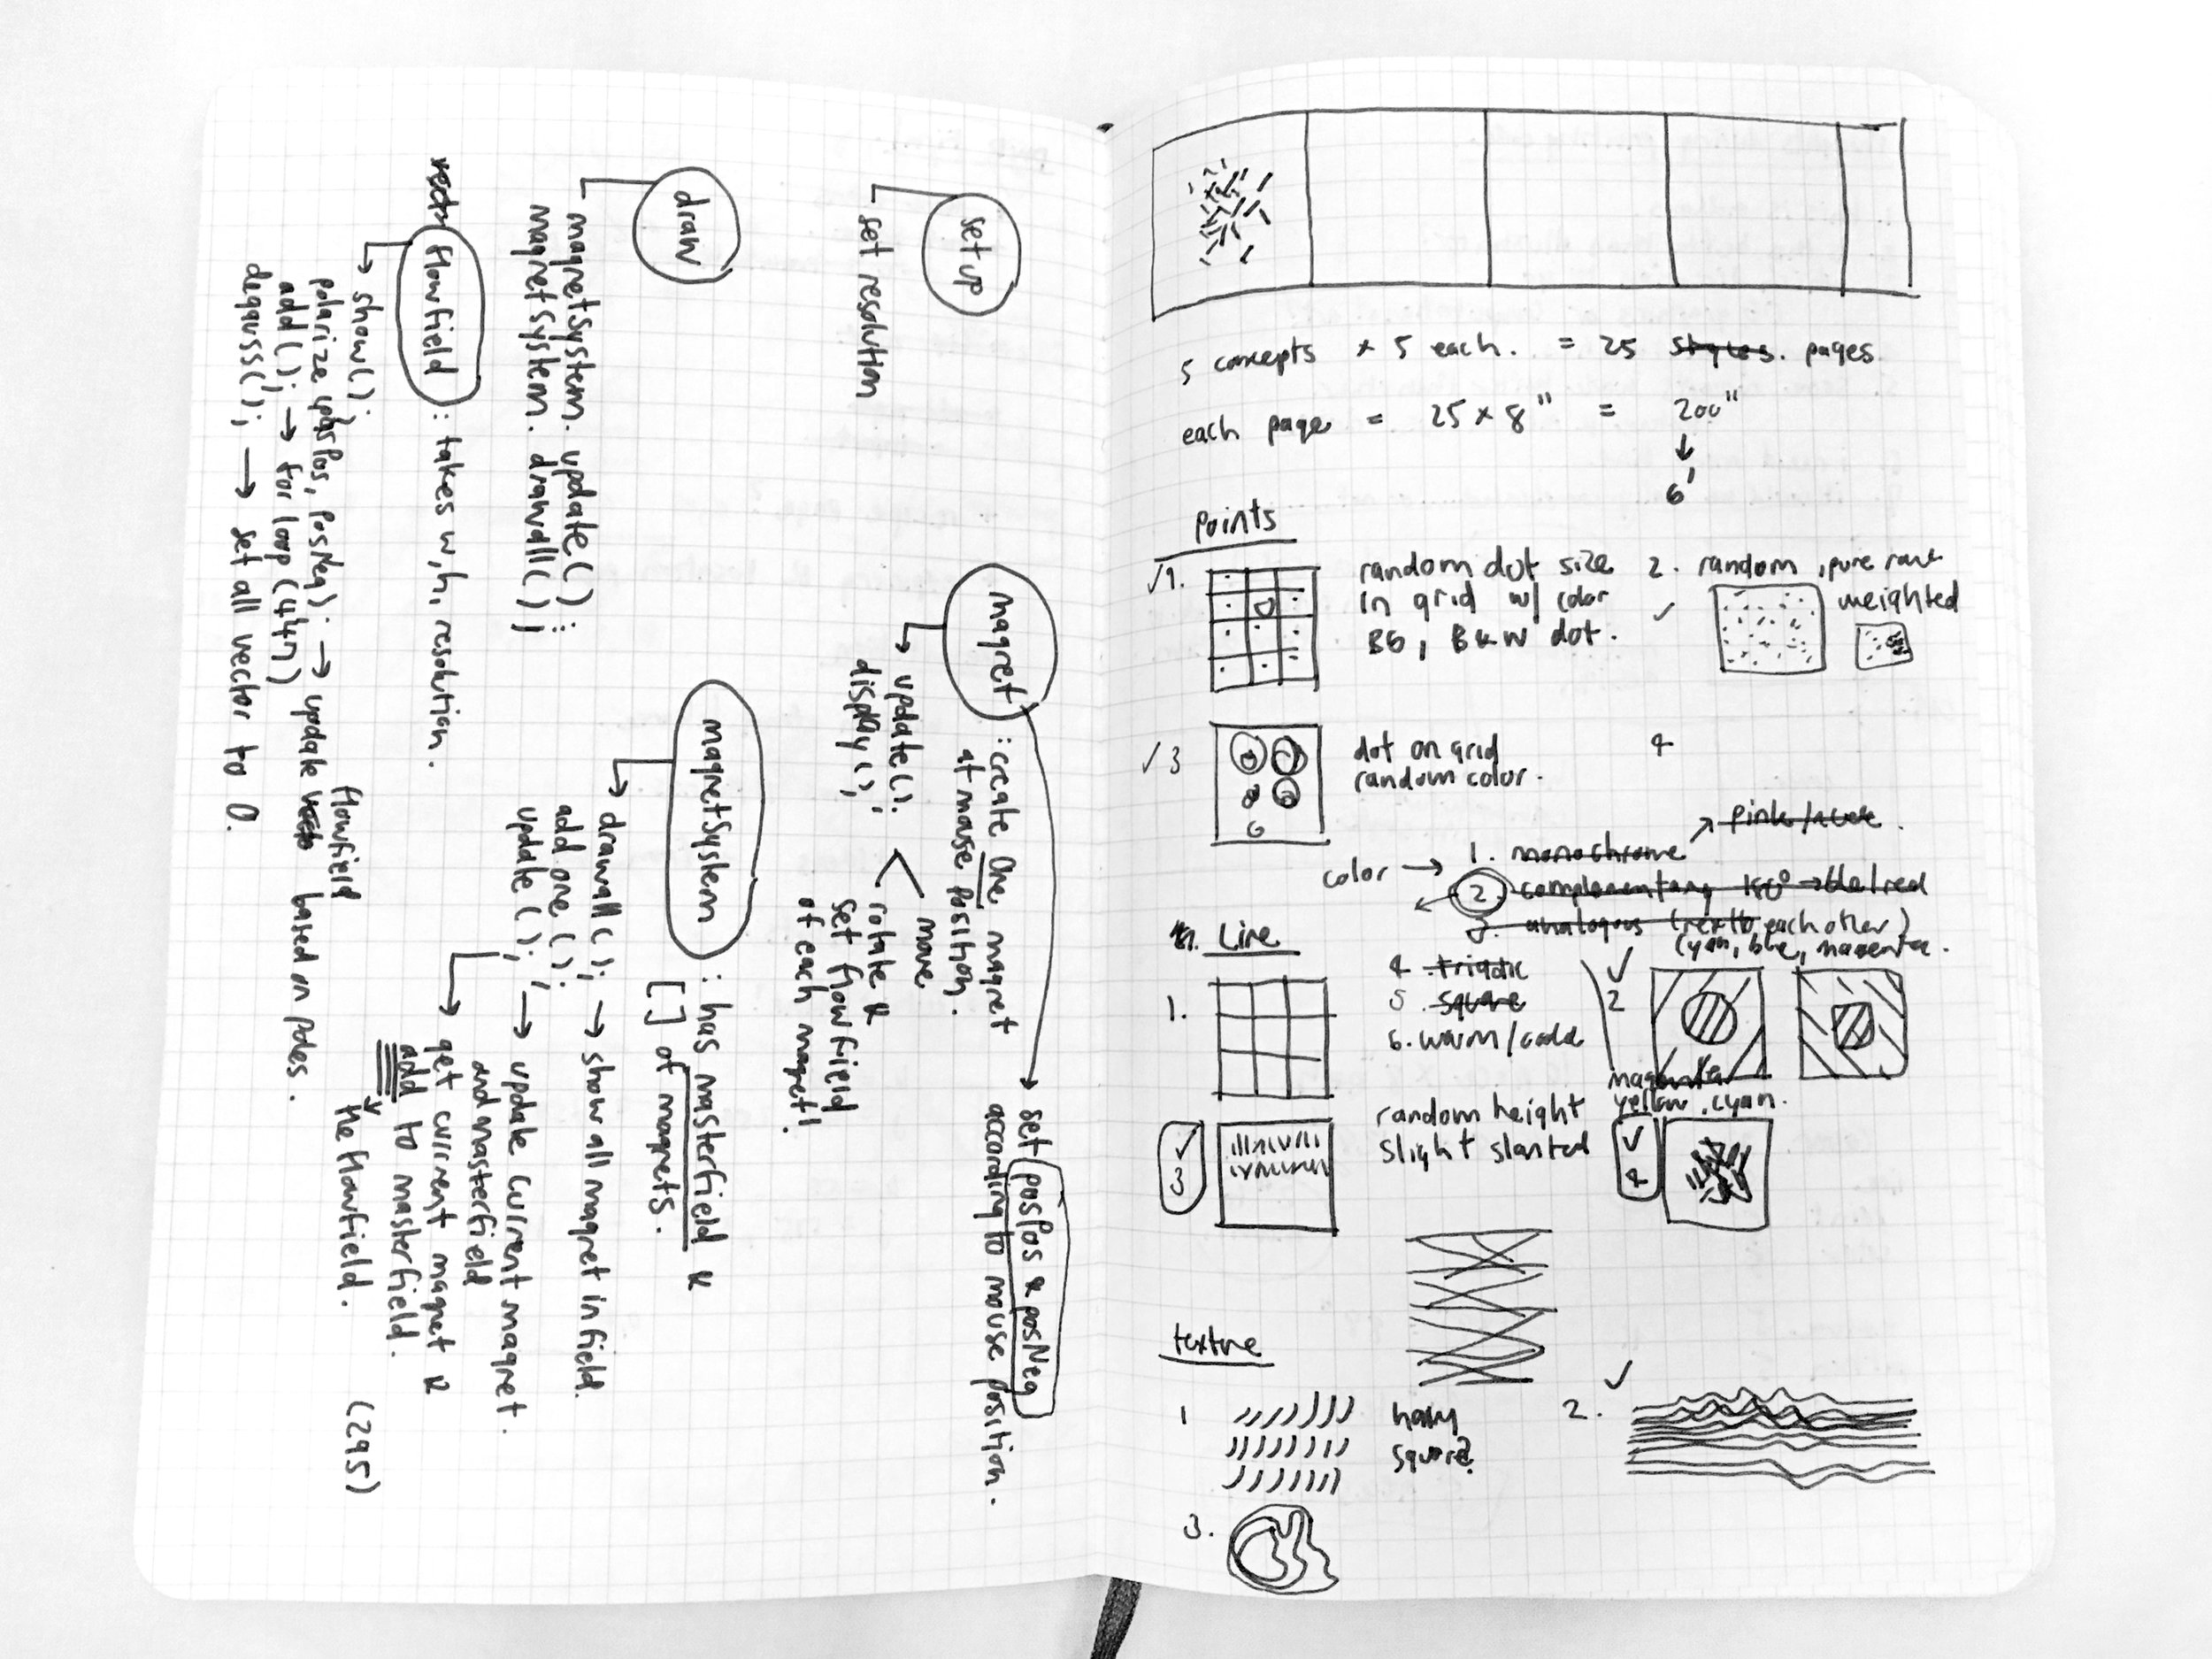 setup
set resolution
draw
magnetSystem. update();
magnetSystem. drawall();
flowfield : takes w,h, resolution.
show();
polarize updsPos, PosNeg) → update flowfield based on poles.
add(); → for loop (447)
degauss(); → set all vector to 0.
magnet : create One magnet
at mouse position.
set posPos & posNeg
according to mouse position.
update();
display();
move
rotate &
set flowfield
of each magnet!
magnetSystem : has masterfield &
[ ] of magnets.
drawall(); → show all magnet in field.
add one();
update(); → update current magnet.
and masterfield
get current magnet &
add to masterfield.
the flowfield.
(295)
5 concepts × 5 each. = 25 styles. pages
each page = 25 × 8" = 200"
6'
points
√1. random dot size
in grid w/ color
BG, B&W dot.
2. random, pure
weighted
√3 dot on grid
random color.
4
color → 1. monochrome
2. complementary 180° →
3. analogous (next to each other)
(cyan, blue, magenta.
4 triadic
5. square
6. warm/cold
Line
1.
2
magenta
yellow, cyan.
3
random height
slight slanted
4
texture
1
square?
2.
3.